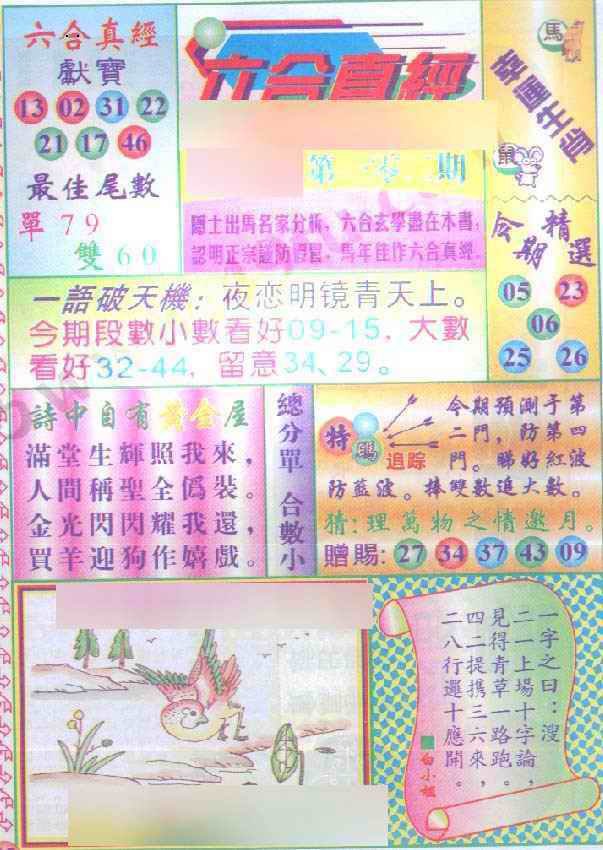 六合真經
獻寶
13 02 31 22
21 17 46
最佳尾數
單 7 9
雙 6 0
六合真經
期
隱士出馬名家分析，六合玄學盡在本書，
認明正宗謹防假冒，馬年佳作六合真經。
馬
幸運生肖
鼠
今期精選
05 23
06
25 26
一語破天機：夜恋明镜青天上。
今期段數小數看好09-15，大數
看好32-44，留意34、29。
詩中自有黃金屋
滿堂生輝照我來，
人間稱聖全偽裝。
金光閃閃耀我還，
買羊迎狗作嬉戲。
總分單 合數小
特碼
追踪
今期預測于第
二門，防第四
門。睇好紅波
防藍波。捧雙數追大數。
猜：理萬物之情邀月。
贈賜：27 34 37 43 09
一字之曰：溲
二一上場十字論，
見得青草一路跑。
四二提携三六來，
二八行運十應開。
白小姐